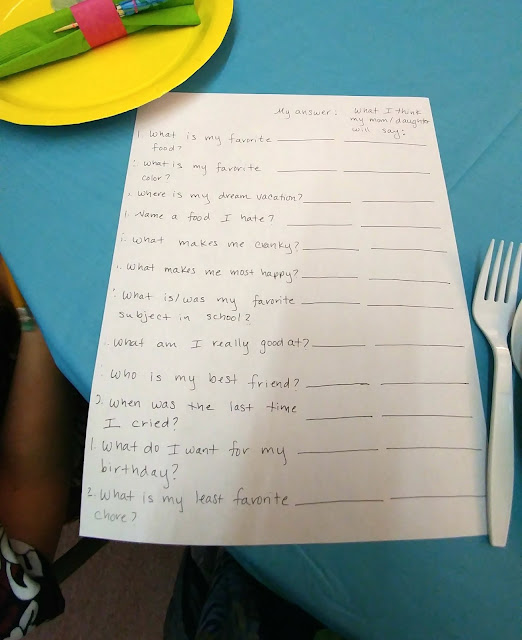 My answer: What I think
my mom/daughter
will say:
1. What is my favorite
food?
What is my favorite
color?
Where is my dream vacation?
Name a food I hate?
What makes me cranky?
What makes me most happy?
What is/was my favorite
subject in school?
What am I really good at?
Who is my best friend?
When was the last time
I cried?
1. What do I want for my
birthday?
2. What is my least favorite
chore?